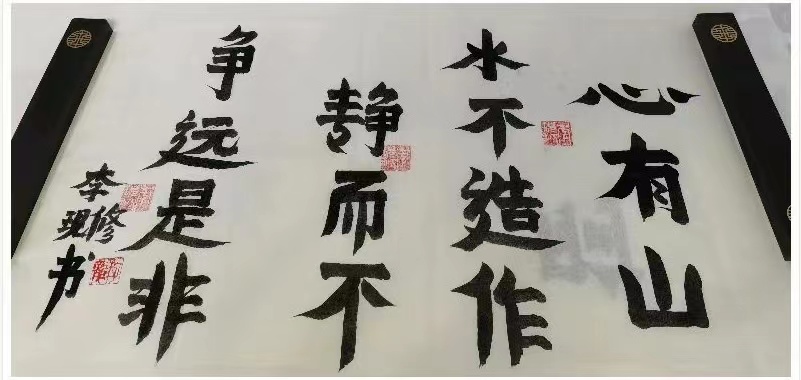 心有山
水不造作
静而不
争远是非
李修现书